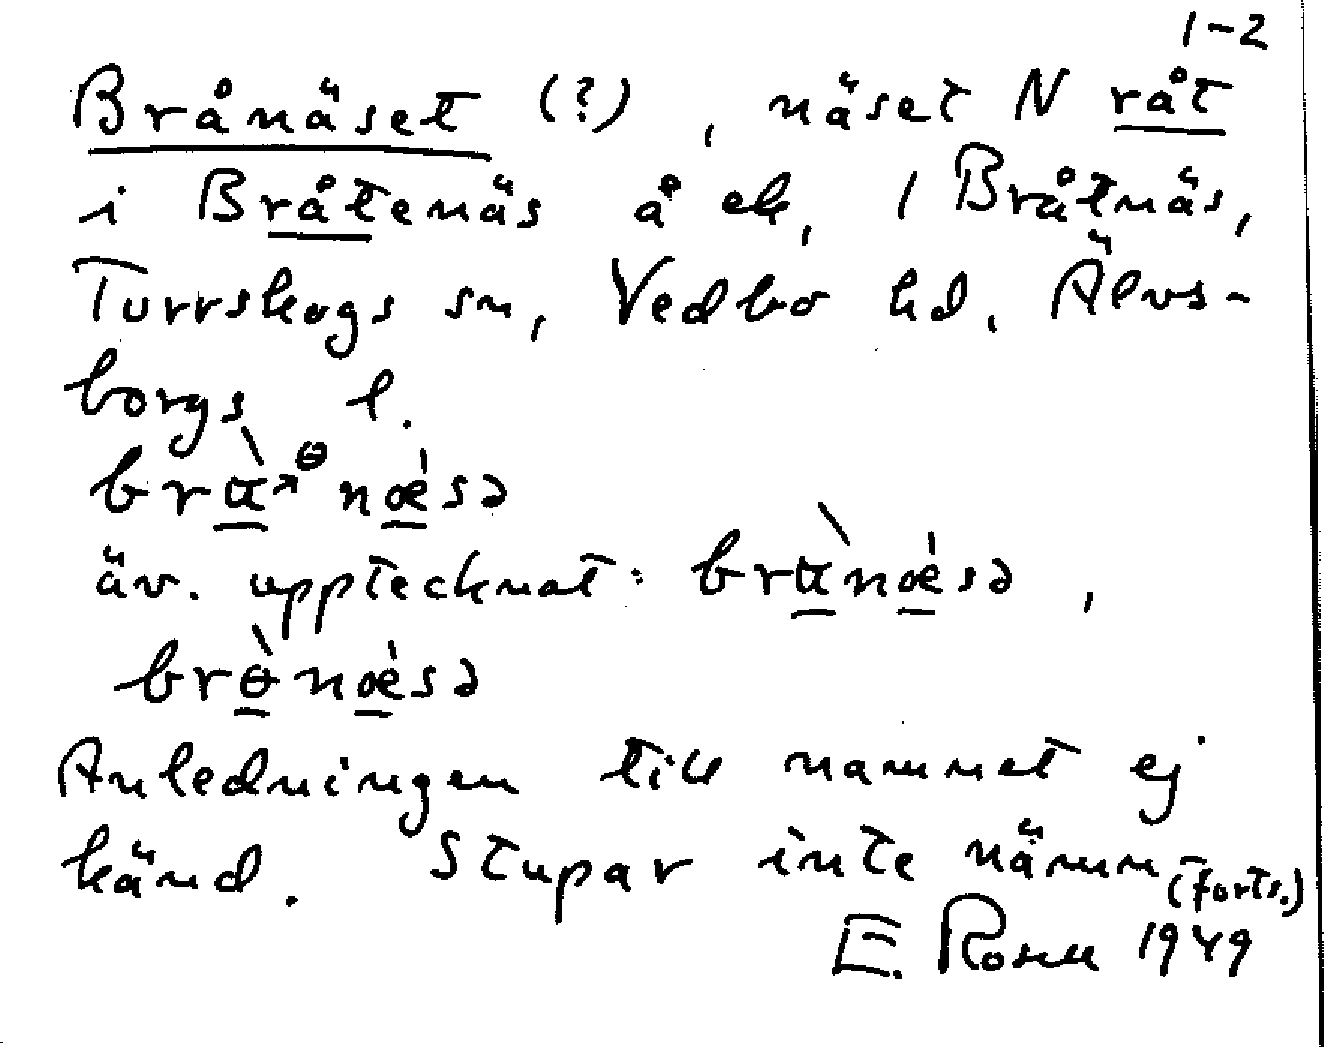 1-2
Brånäset (?), näset N råt
i Bråtenäs å ek, 1 Bråtnäs,
Torrskogs sn, Vedbo hd, Älvs-
borgs l.
näsə
äv. upptecknat: , 
Anledningen till namnet ej
känd. Stupar inte nämn (forts.)
E. Rosell 1949